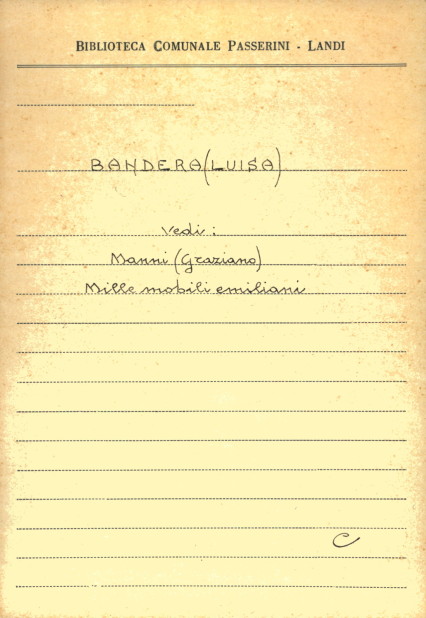 BIBLIOTECA COMUNALE PASSERINI - LANDI
BANDERA (LUISA)
Vedi :
Manni (Graziano)
Mille mobili emiliani
C